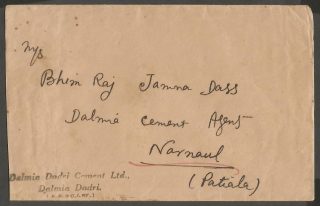 M/s
Bhim Raj Jamna Dass
Dalmia Cement Agent
Narnaul
(Patiala)
Dalmia Dadri Cement Ltd.,
Dalmia Dadri.